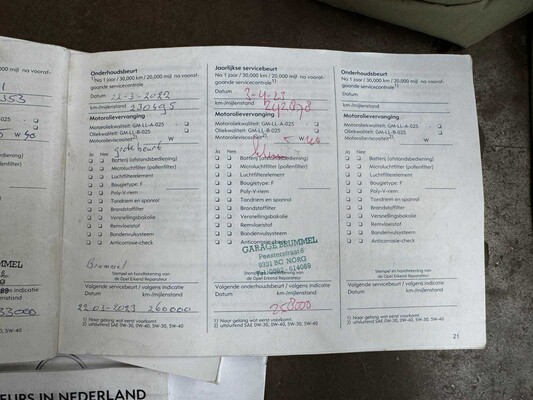 000 mijl na vooraf-
1
353
025
W 40
indicatie
33000
5W-40
Onderhoudsbeurt
Na 1 jaar / 30,000 km / 20,000 mijl na vooraf-
gaande servicecontrole 1)
Datum 22-3-2022
km-/mijlenstand 230495
Motorolievervanging
Motoroliekwaliteit: GM-LL-A-025
Oliekwaliteit: GM-LL-B-025
Motorolieviscositeit 2) W
Ja Nee
Batterij (afstandsbediening)
Microluchtfilter (pollenfilter)
Luchtfilterelement
Bougietype: F
Poly-V-riem
Tandriem en spanrol
Brandstoffilter
Versnellingsbakolie
Remvloeistof
Bandenvulsysteem
Anticorrosie-check
Brummel
Stempel en handtekening van
de Opel Erkend Reparateur
Volgende servicebeurt / volgens indicatie
Datum km-/mijlenstand
22-03-2023 260000
1) Naar gelang wat eerst voorkomt.
2) uitsluitend SAE 0W-30, 0W-40, 5W-30, 5W-40
Jaarlijkse servicebeurt
Na 1 jaar / 30,000 km / 20,000 mijl na vooraf-
gaande servicecontrole 1)
Datum 3-4-23
km-/mijlenstand 242878
Motorolievervanging
Motoroliekwaliteit: GM-LL-A-025
Oliekwaliteit: GM-LL-B-025
Motorolieviscositeit 2) 5 W 40
Ja Nee
Batterij (afstandsbediening)
Microluchtfilter (pollenfilter)
Luchtfilterelement
Bougietype: F
Poly-V-riem
Tandriem en spanrol
Brandstoffilter
Versnellingsbakolie
Remvloeistof
Bandenvulsysteem
Anticorrosie-check
GARAGE BRUMMEL
Peesterstraat 6
9331 BC NORG
Stempel en handtekening van
Volgende onderhoudsbeurt / volgens indicatie
Datum km-/mijlenstand
258000
1) Naar gelang wat eerst voorkomt.
2) uitsluitend SAE 0W-30, 0W-40, 5W-30, 5W-40
Onderhoudsbeurt
Na 1 jaar / 30,000 km / 20,000 mijl na vooraf-
gaande servicecontrole 1)
Datum
km-/mijlenstand
Motorolievervanging
Motoroliekwaliteit: GM-LL-A-025
Oliekwaliteit: GM-LL-B-025
Motorolieviscositeit 2) W
Ja Nee
Batterij (afstandsbediening)
Microluchtfilter (pollenfilter)
Luchtfilterelement
Bougietype: F
Poly-V-riem
Tandriem en spanrol
Brandstoffilter
Versnellingsbakolie
Remvloeistof
Bandenvulsysteem
Anticorrosie-check
Stempel en handtekening van
de Opel Erkend Reparateur
Volgende servicebeurt / volgens indicatie
Datum km-/mijlenstand
1) Naar gelang wat eerst voorkomt.
2) uitsluitend SAE 0W-30, 0W-40, 5W-30, 5W-40
21
EURS IN NEDERLAND